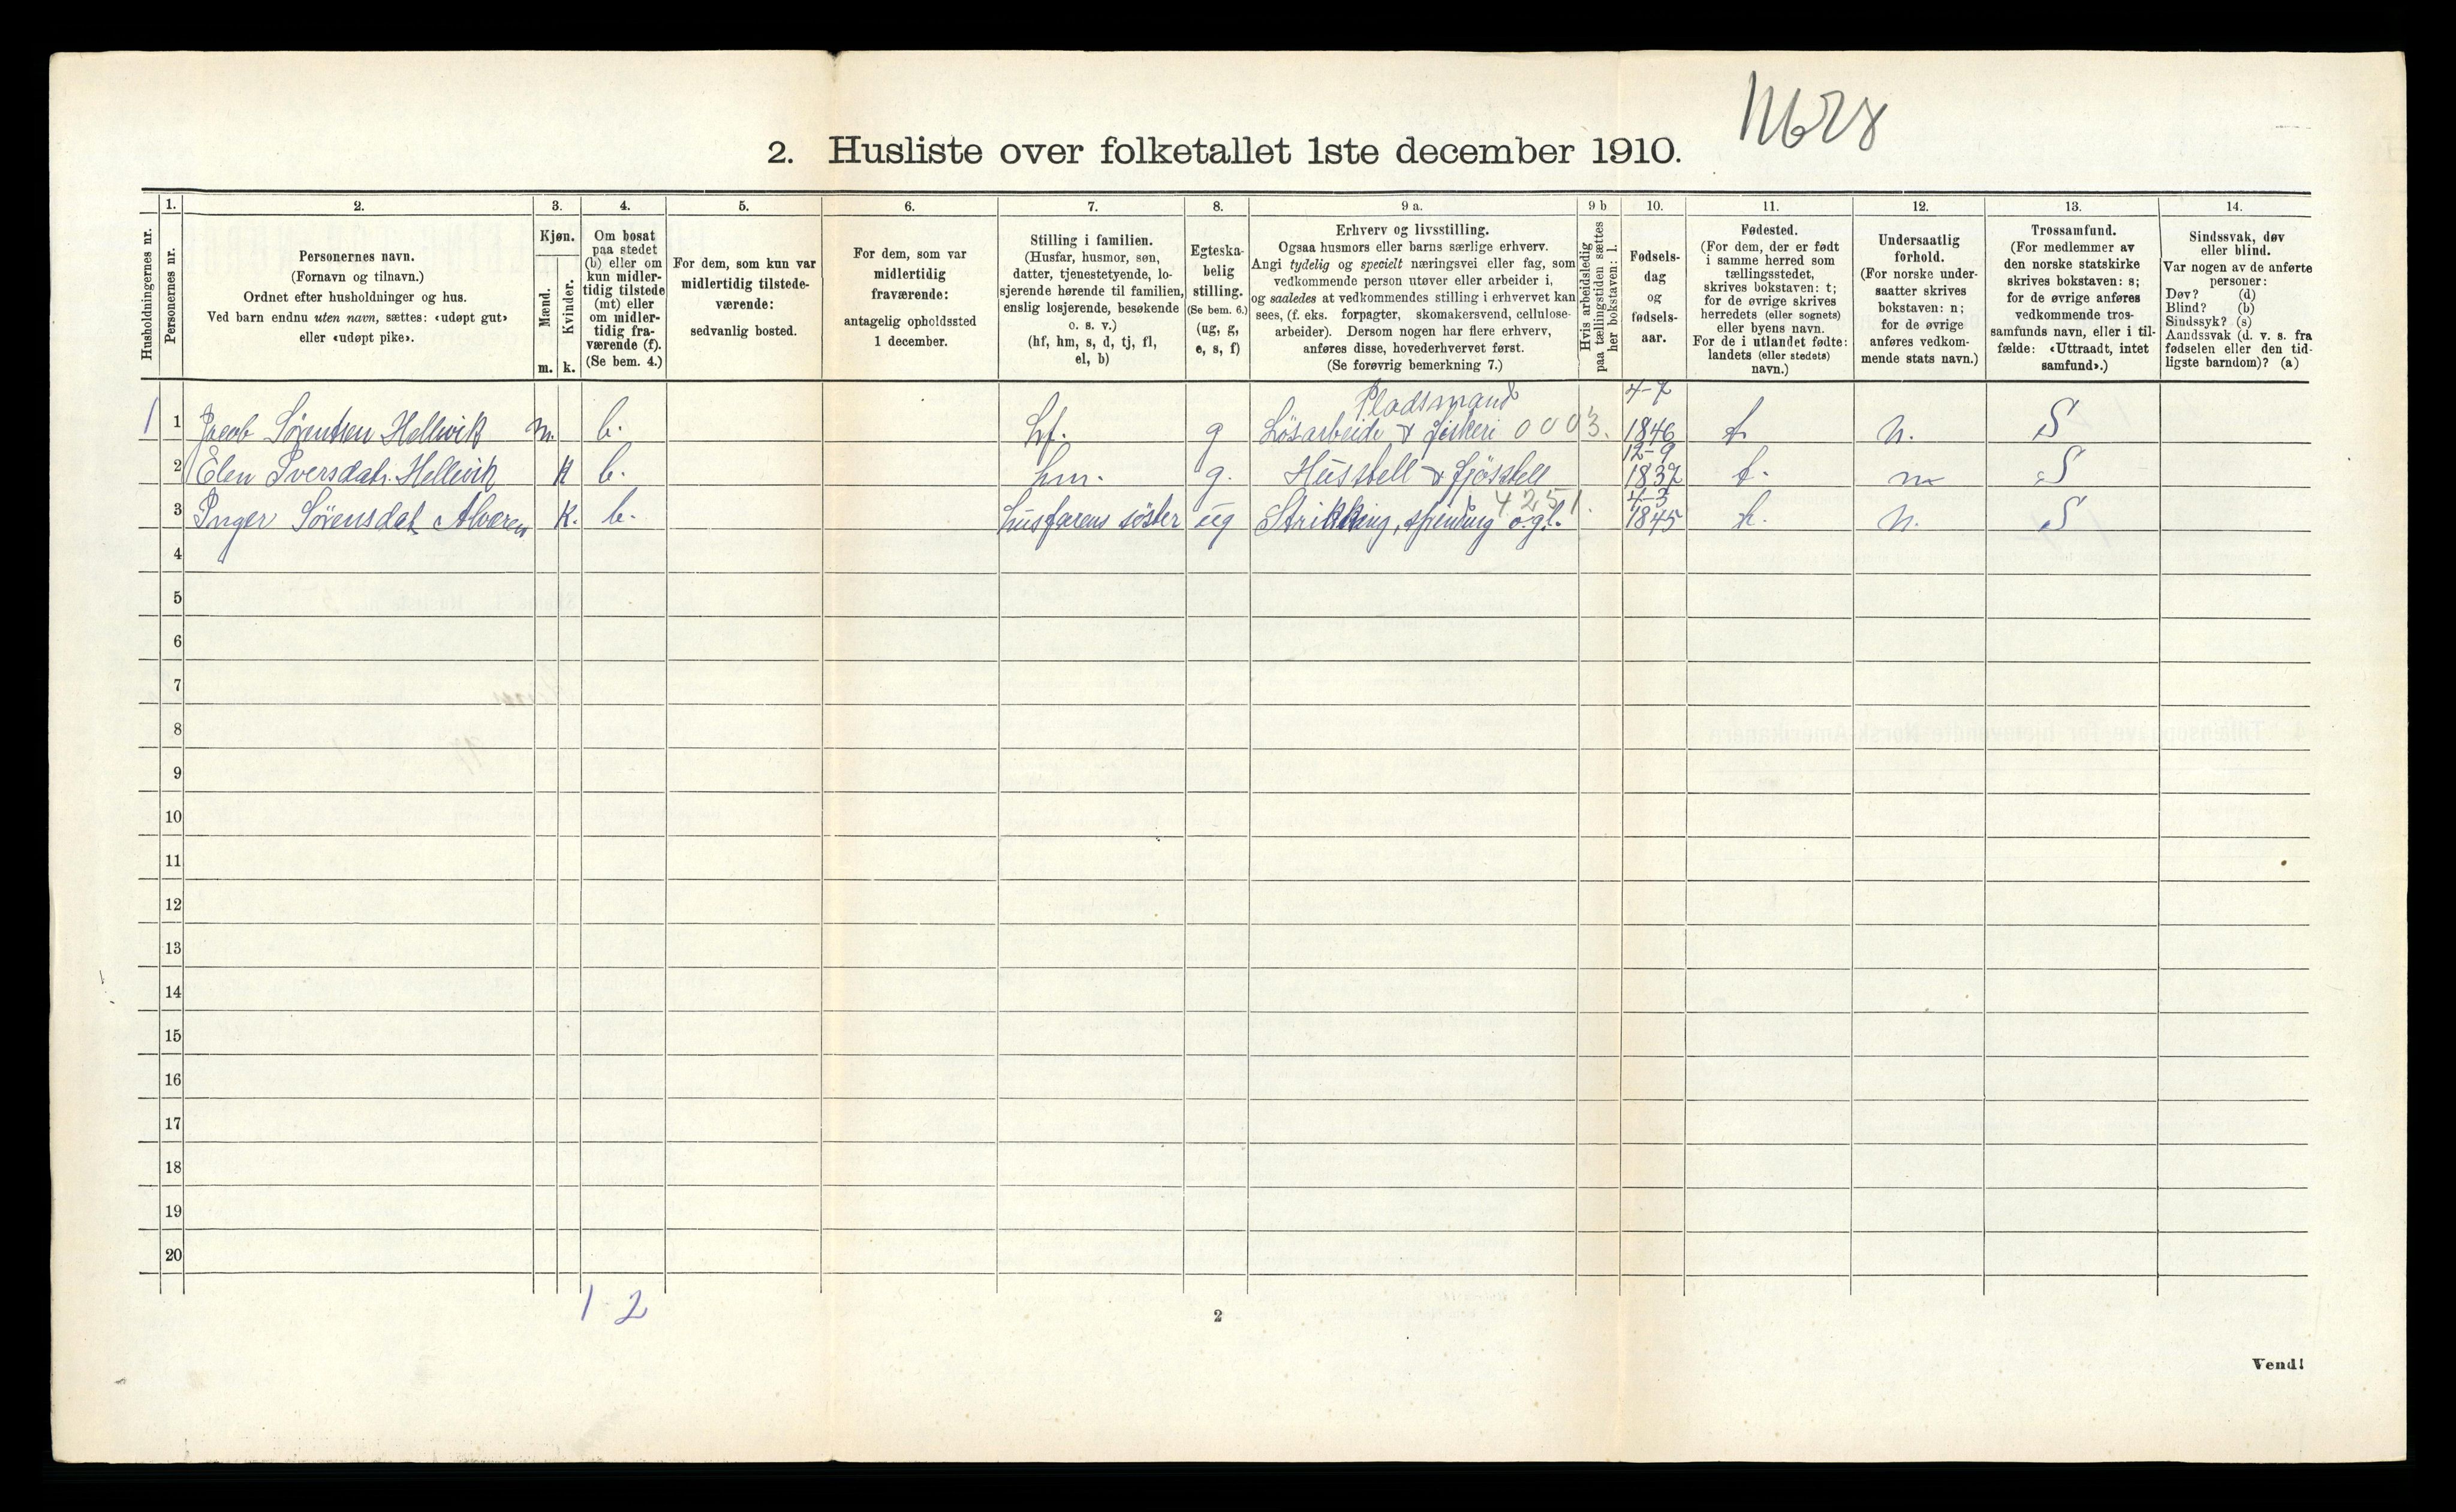 1628
2. Husliste over folketallet 1ste december 1910.
Husholdningernes nr.
1.
Personernes nr.
2.
Personernes navn.
(Fornavn og tilnavn.)
Ordnet efter husholdninger og hus.
Ved barn endnu uten navn, sættes: «udøpt gut»
eller «udøpt pike».
3.
Kjøn.
Mænd.
Kvinder.
m. k.
4.
Om bosat
paa stedet
(b) eller om
kun midler-
tidig tilstede
(mt) eller
om midler-
tidig fra-
værende (f).
(Se bem. 4.)
5.
For dem, som kun var
midlertidig tilstede-
værende:
sedvanlig bosted.
6.
For dem, som var
midlertidig
fraværende:
antagelig opholdssted
1 december.
7.
Stilling i familien.
(Husfar, husmor, søn,
datter, tjenestetyende, lo-
sjerende hørende til familien,
enslig losjerende, besøkende
o. s. v.)
(hf, hm, s, d, tj, fl,
el, b)
8.
Egteska-
belig
stilling.
(Se bem. 6.)
(ug, g,
e, s, f)
9 a.
Erhverv og livsstilling.
Ogsaa husmors eller barns særlige erhverv.
Angi tydelig og specielt næringsvei eller fag, som
vedkommende person utøver eller arbeider i,
og saaledes at vedkommendes stilling i erhvervet kan
sees, (f. eks. forpagter, skomakersvend, cellulose-
arbeider). Dersom nogen har flere erhverv,
anføres disse, hovederhvervet først.
(Se forøvrig bemerkning 7.)
9 b
Hvis arbeidsledig
paa tællingstiden sættes
her bokstaven: l.
10.
Fødsels-
dag
og
fødsels-
aar.
11.
Fødested.
(For dem, der er født
i samme herred som
tællingsstedet,
skrives bokstaven: t;
for de øvrige skrives
herredets (eller sognets)
eller byens navn.
For de i utlandet fødte:
landets (eller stedets)
navn.)
12.
Undersaatlig
forhold.
(For norske under-
saatter skrives
bokstaven: n;
for de øvrige
anføres vedkom-
mende stats navn.)
13.
Trossamfund.
(For medlemmer av
den norske statskirke
skrives bokstaven: s;
for de øvrige anføres
vedkommende tros-
samfunds navn, eller i til-
fælde: «Uttraadt, intet
samfund».)
14.
Sindssvak, døv
eller blind.
Var nogen av de anførte
personer:
Døv? (d)
Blind? (b)
Sindssyk? (s)
Aandssvak (d. v. s. fra
fødselen eller den tid-
ligste barndom)? (a)
Pladsmand 4-7
1 1 Jacob Sørensen Hellevik m. b. hf. g Løsarbeide & fiskeri 0003. 1846 t n. S
12-9
2 Elen Iversdatr. Hellevik k b. hm. g. Husstell & fjøsstell 1837 t. n S
4251. 4-3
3 Inger Sørensdat Alværen k. b. husfarens søster ug Strikking, spinding o.gl. 1845 t. n. S
4
5
6
7
8
9
10
11
12
13
14
15
16
17
18
19
20
1 2
2
Vend!